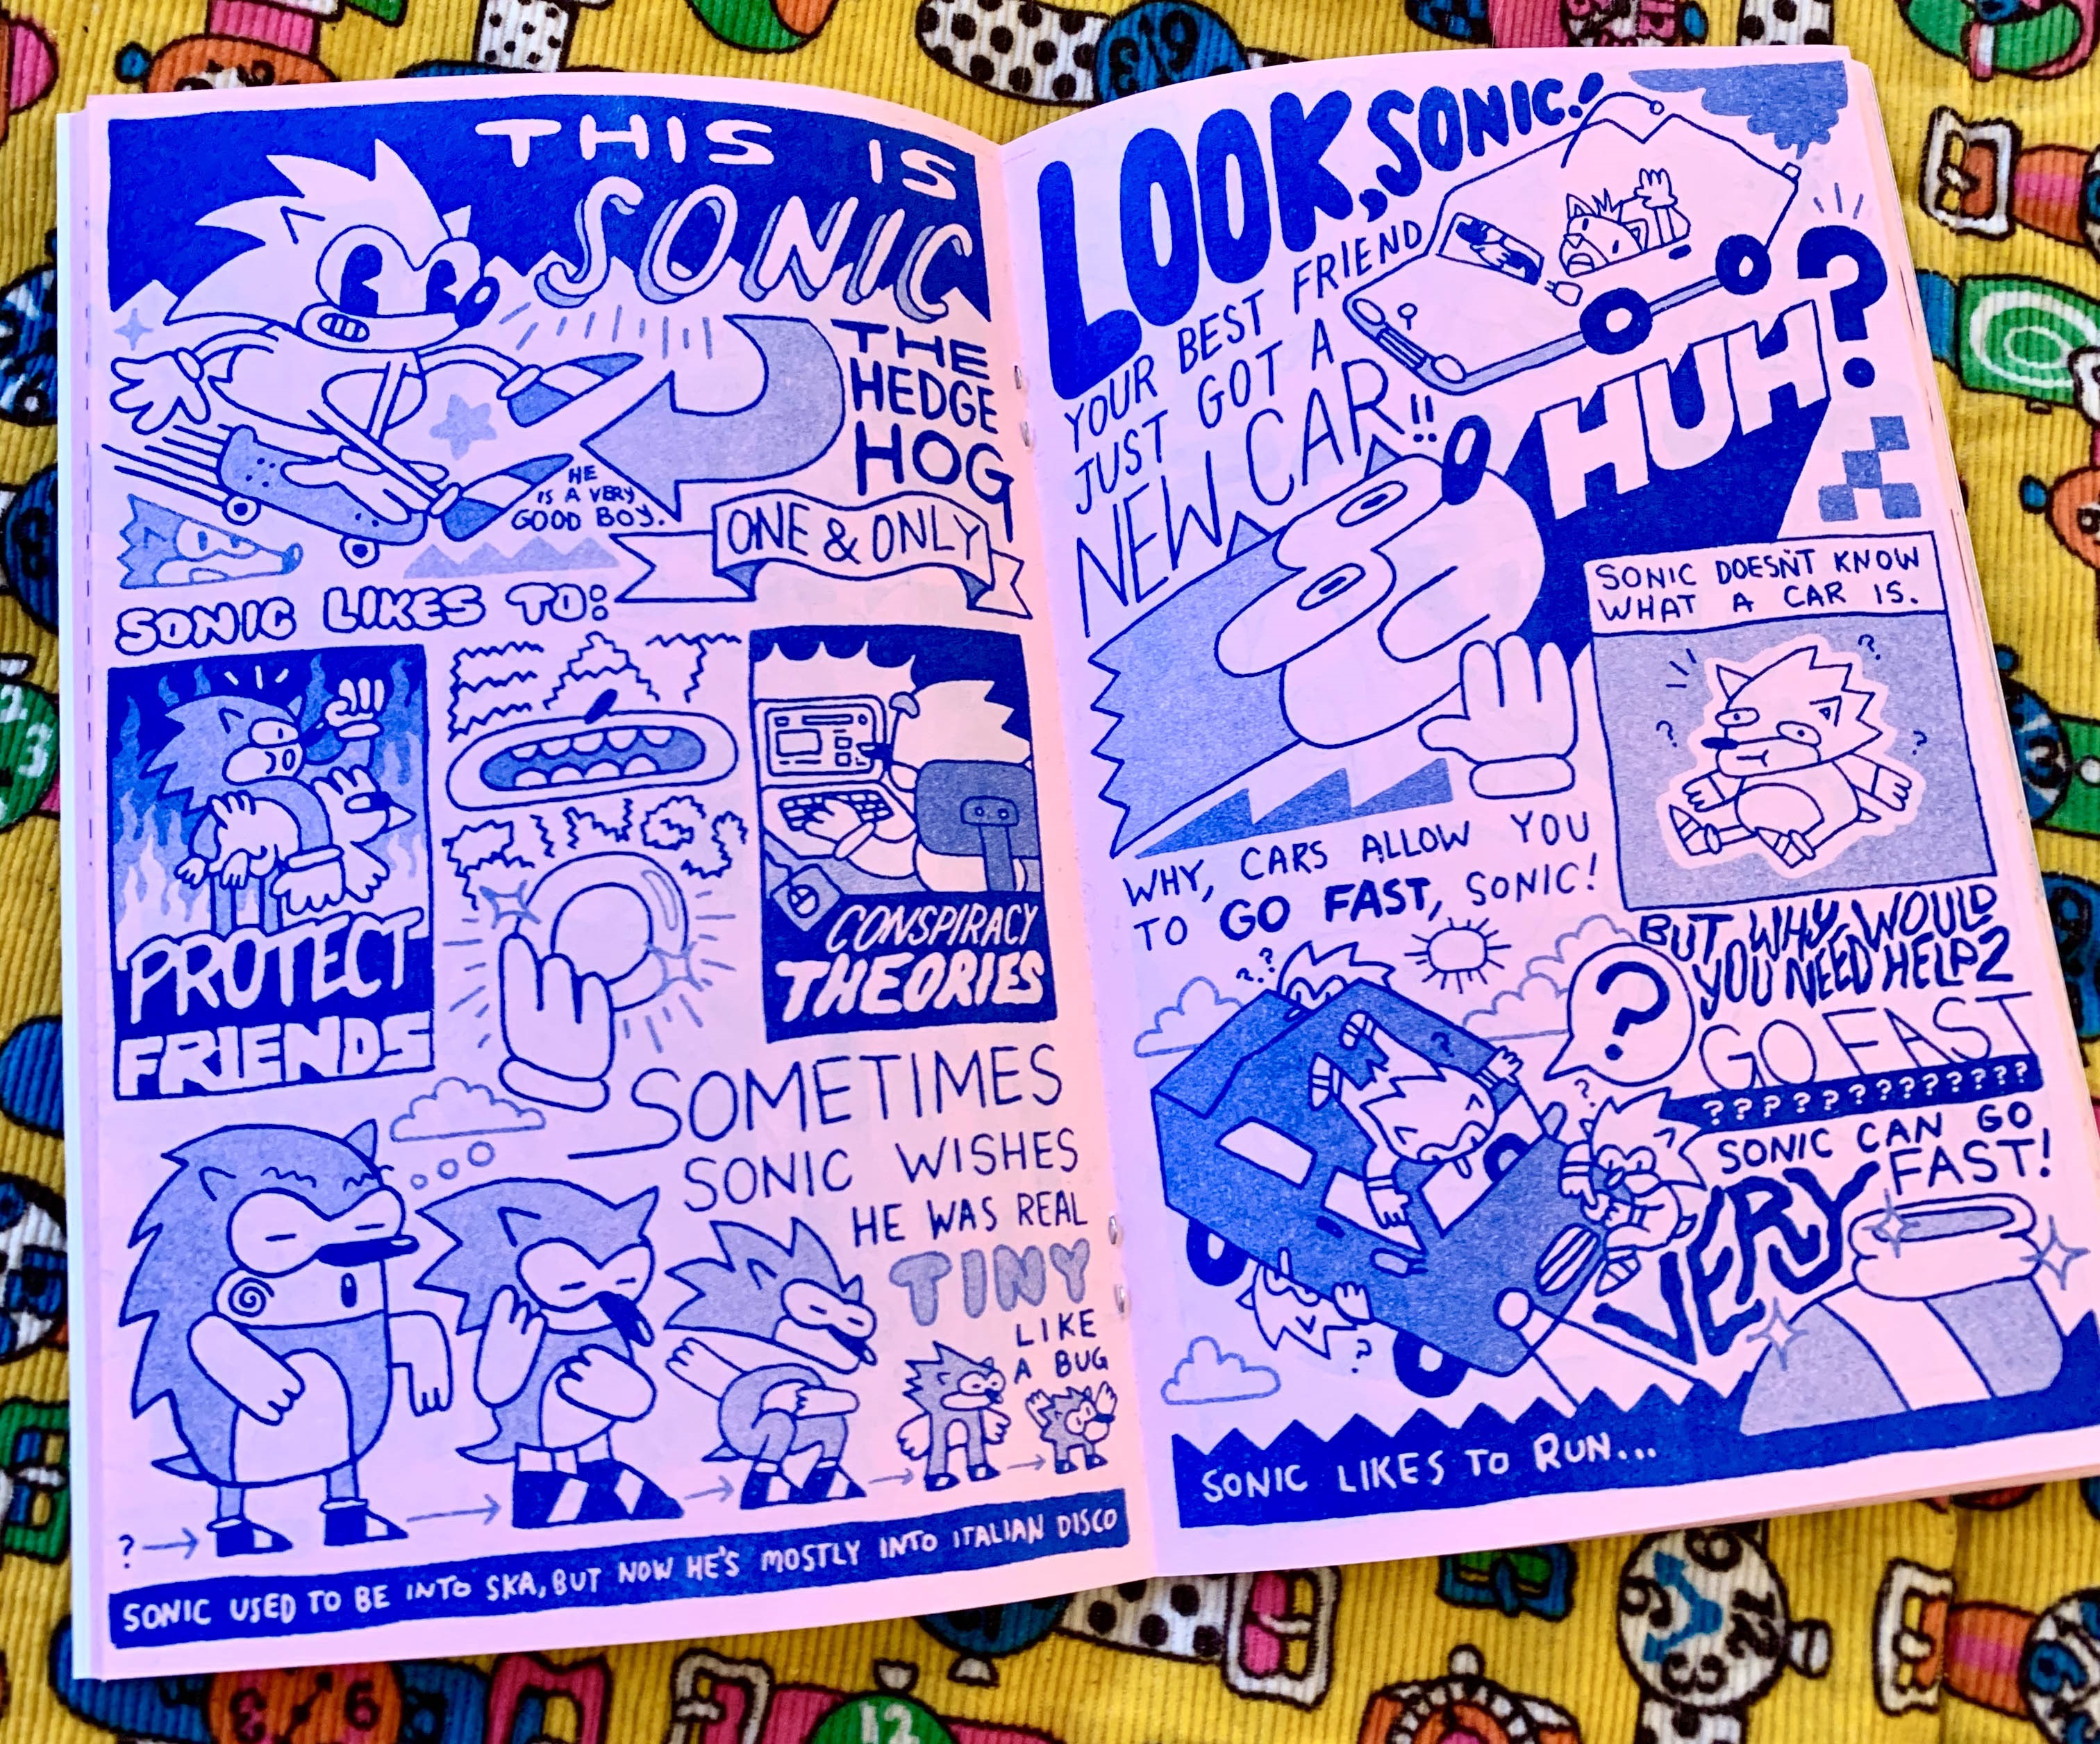 THIS IS
SONIC
THE
HEDGE
HOG
HE
IS A VERY
GOOD BOY.
ONE & ONLY
SONIC LIKES TO:
PROTECT
FRIENDS
EAT
RINGS
CONSPIRACY
THEORIES
SOMETIMES
SONIC WISHES
HE WAS REAL
TINY
LIKE
A BUG
?
SONIC USED TO BE INTO SKA, BUT NOW HE'S MOSTLY INTO ITALIAN DISCO
LOOK, SONIC!
YOUR BEST FRIEND
JUST GOT A
NEW CAR!!
HUH?
SONIC DOESN'T KNOW
WHAT A CAR IS.
WHY, CARS ALLOW YOU
TO GO FAST, SONIC!
?
BUT WHY WOULD
YOU NEED HELP 2
GO FAST
????????????
SONIC CAN GO
VERY FAST!
SONIC LIKES TO RUN...